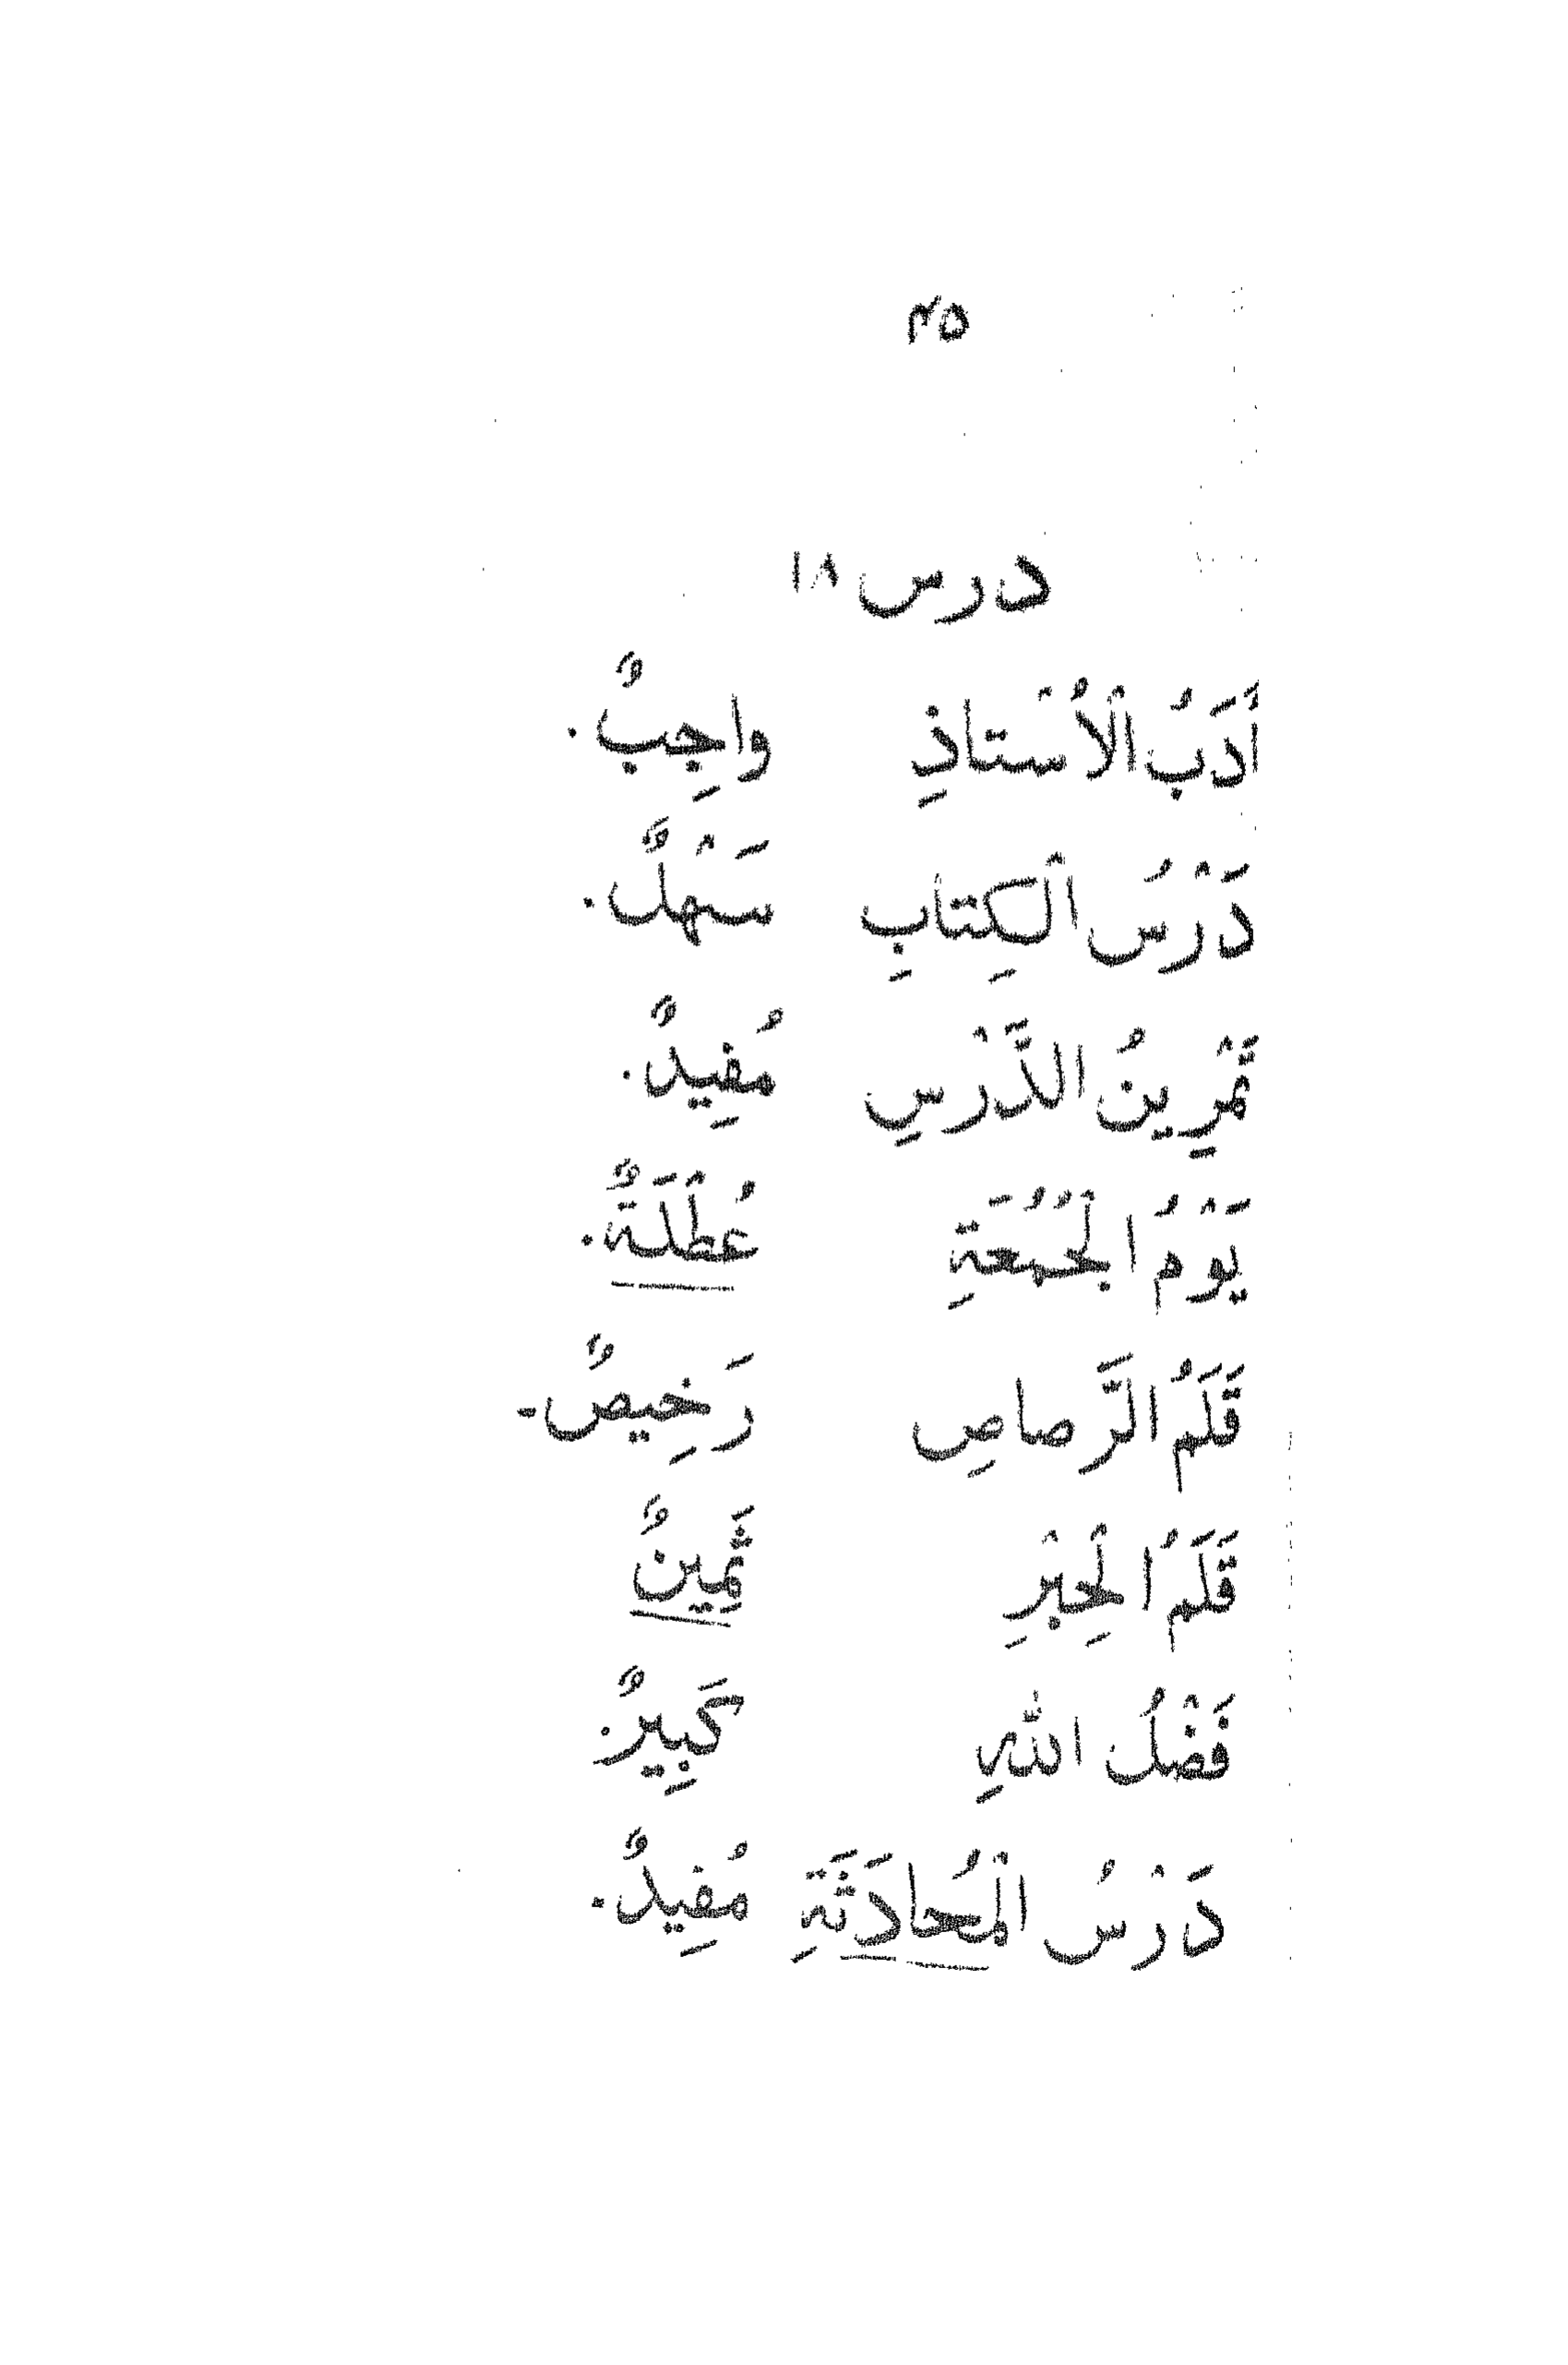 ٣٥
درس ١٨
أَدَبُ الْأُسْتاذِ واجِبٌ.
دَرْسُ الْكِتابِ سَهْلٌ.
تَمْرِينُ الدَّرْسِ مُفِيدٌ.
يَوْمُ الْجُمُعَةِ عُطْلَةٌ.
قَلَمُ الرَّصاصِ رَخِيصٌ.
قَلَمُ الْحِبْرِ ثَمِينٌ
فَضْلُ اللّٰهِ كَبِيرٌ.
دَرْسُ الْمُحادَثَةِ مُفِيدٌ.